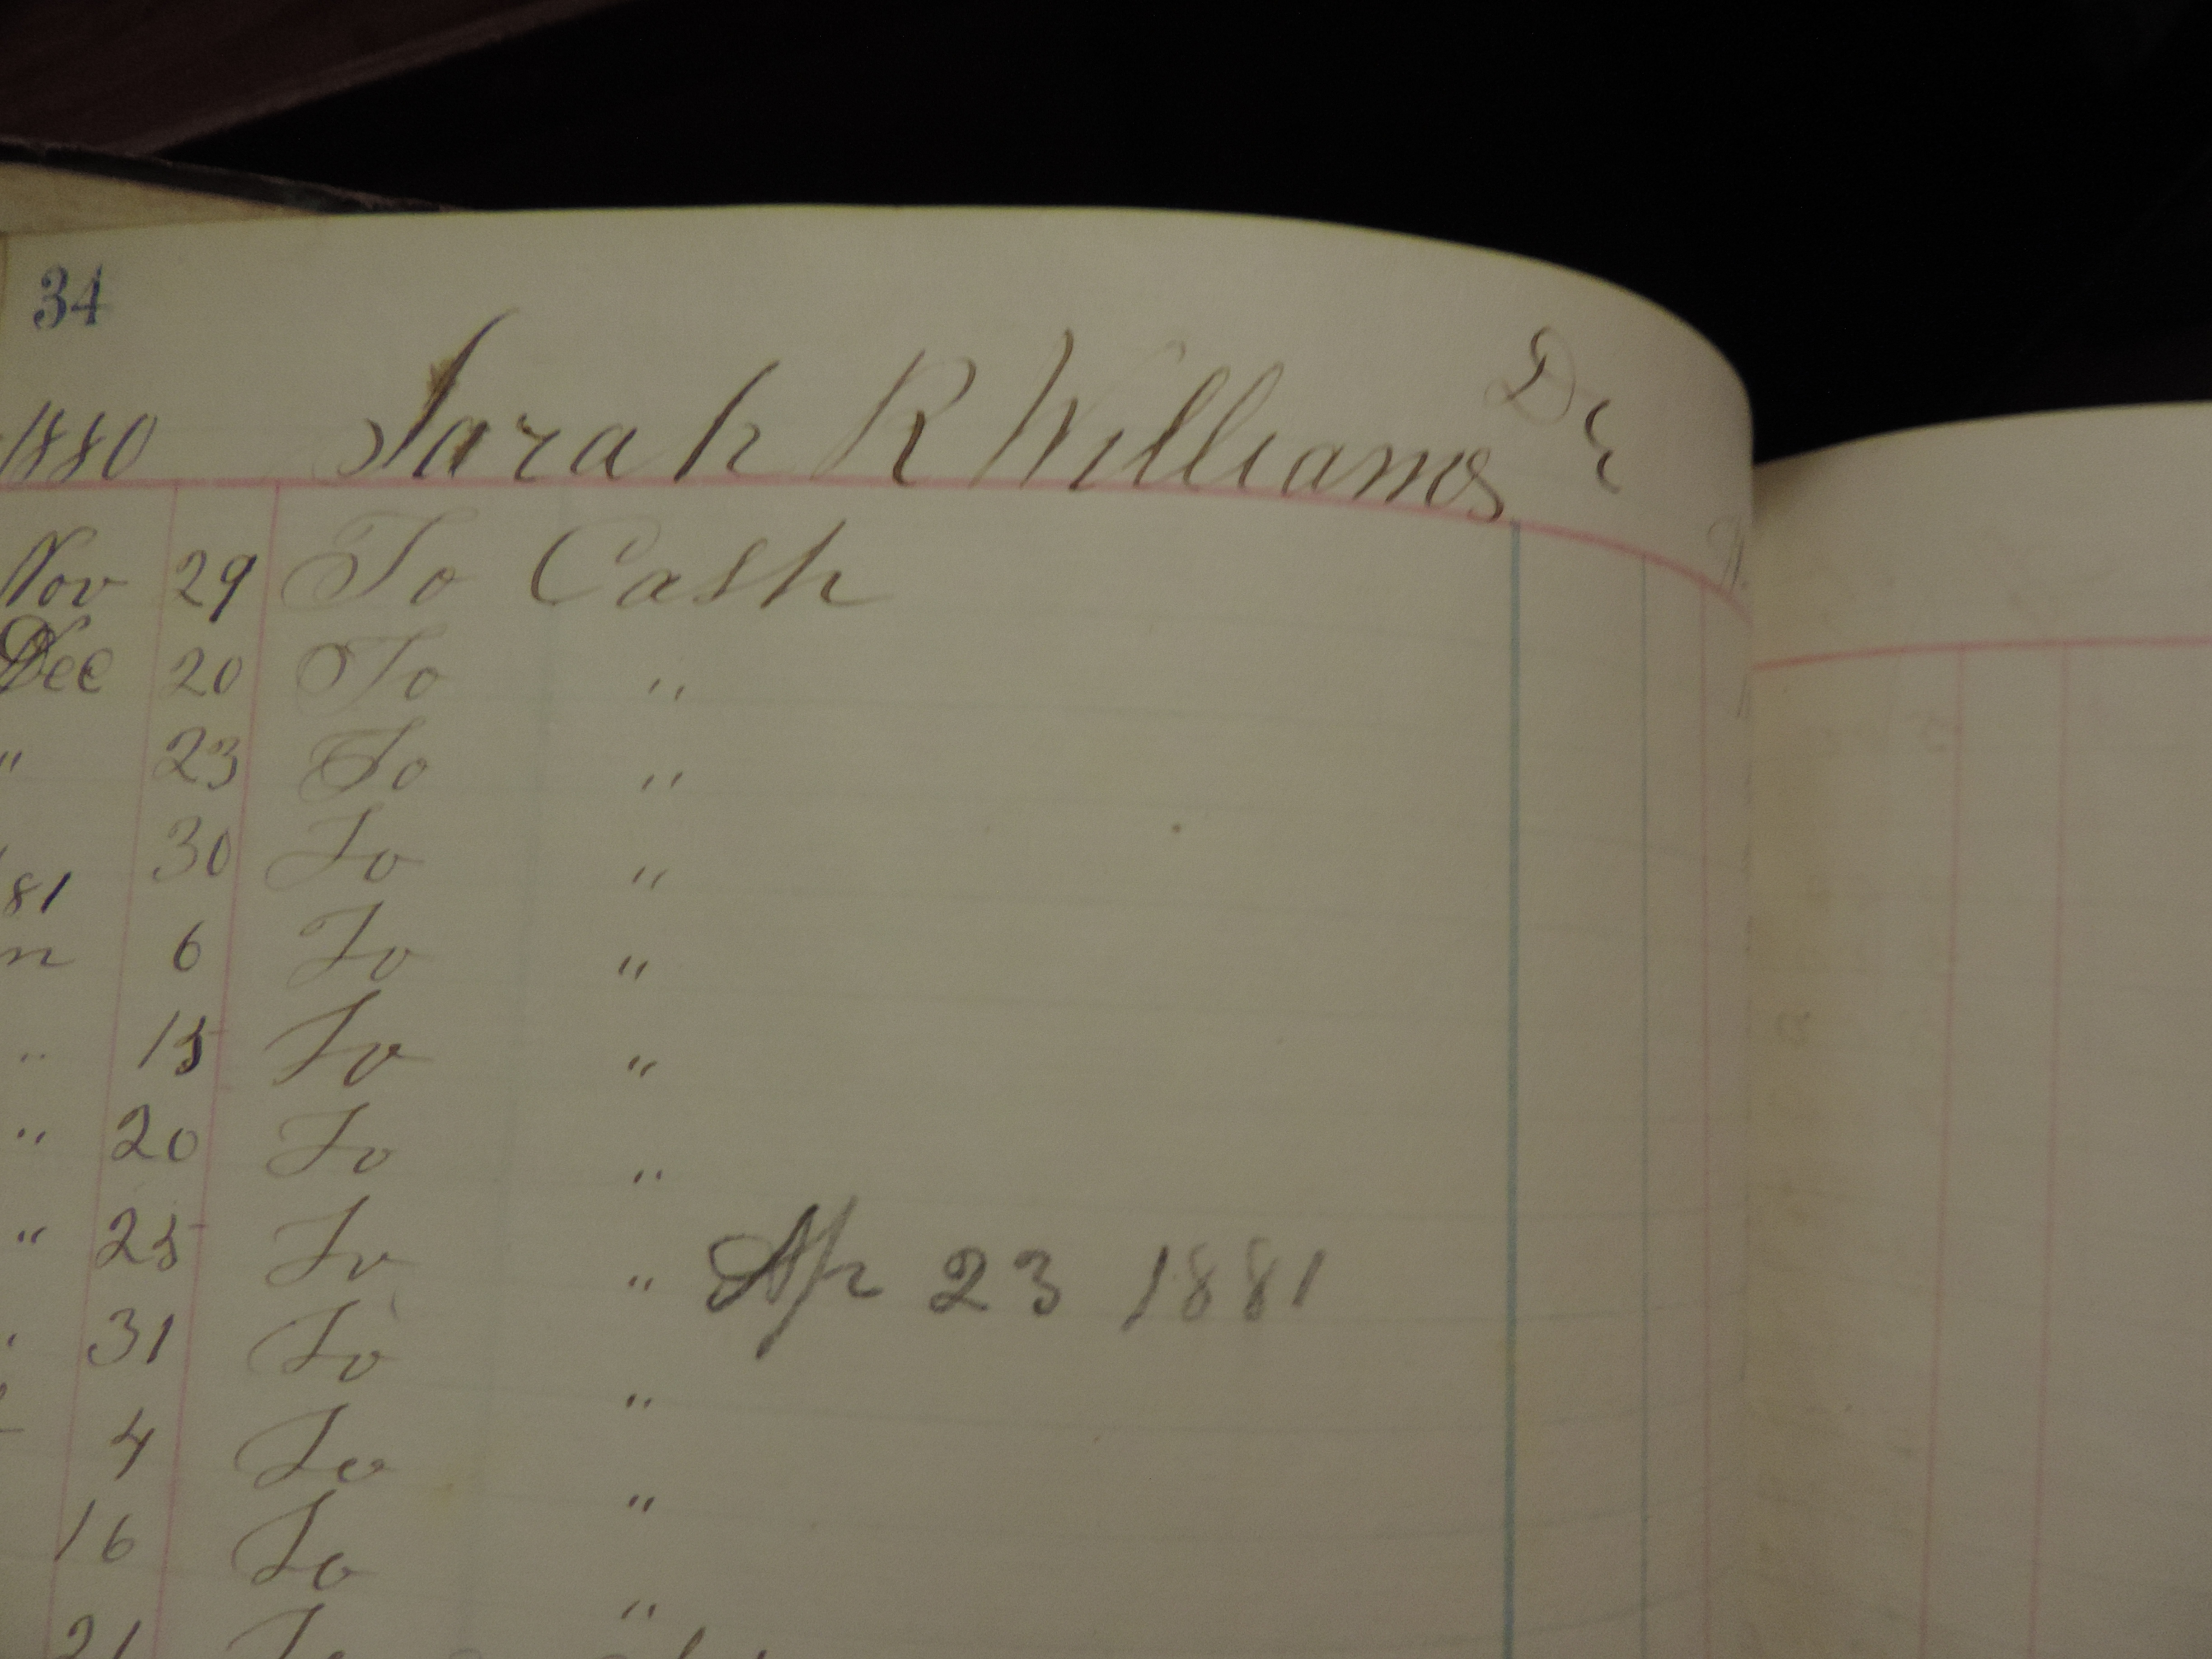 34
1880 Sarah R Williams Dr
Nov 29 To Cash
Dec 20 To "
" 23 To "
30 To "
81
n 6 To "
" 15 To "
" 20 To "
" 25 To " Apr 23 1881
" 31 To "
4 To "
16 To "
21 To